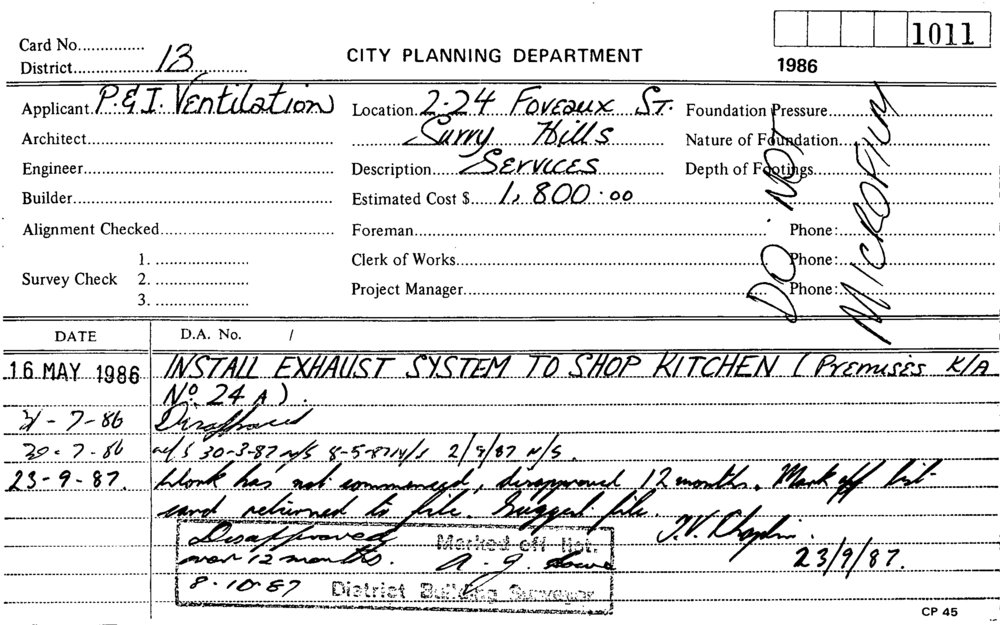 1011
Card No...............
District.................13...........
CITY PLANNING DEPARTMENT
1986
Applicant P. & I. Ventilation
Location 2-24 Foveaux St.
Foundation Pressure
Architect
Surry Hills
Nature of Foundation
Engineer
Description Services
Depth of Footings
Builder
Estimated Cost $ 1,800.00
Alignment Checked
Foreman
Phone:
Survey Check
1.
2.
3.
Clerk of Works
Phone:
Project Manager
Phone:
DO NOT
MICROFILM
DATE
D.A. No. /
16 MAY 1986 INSTALL EXHAUST SYSTEM TO SHOP KITCHEN (Premises K/A
No 24 A).
-7-86 Disapproved
30-7-86 30-3-87 N/S 8-5-87 N/S 2/9/87 N/S.
23-9-87. Work has not commenced, disapproved 12 months. Mark off list
and returned to file. Suggest file.
T.V. Chaplin.
23/9/87.
Disapproved
over 12 months.
Marked off list.
A. J.
8-10-87
District Building Surveyor
CP 45